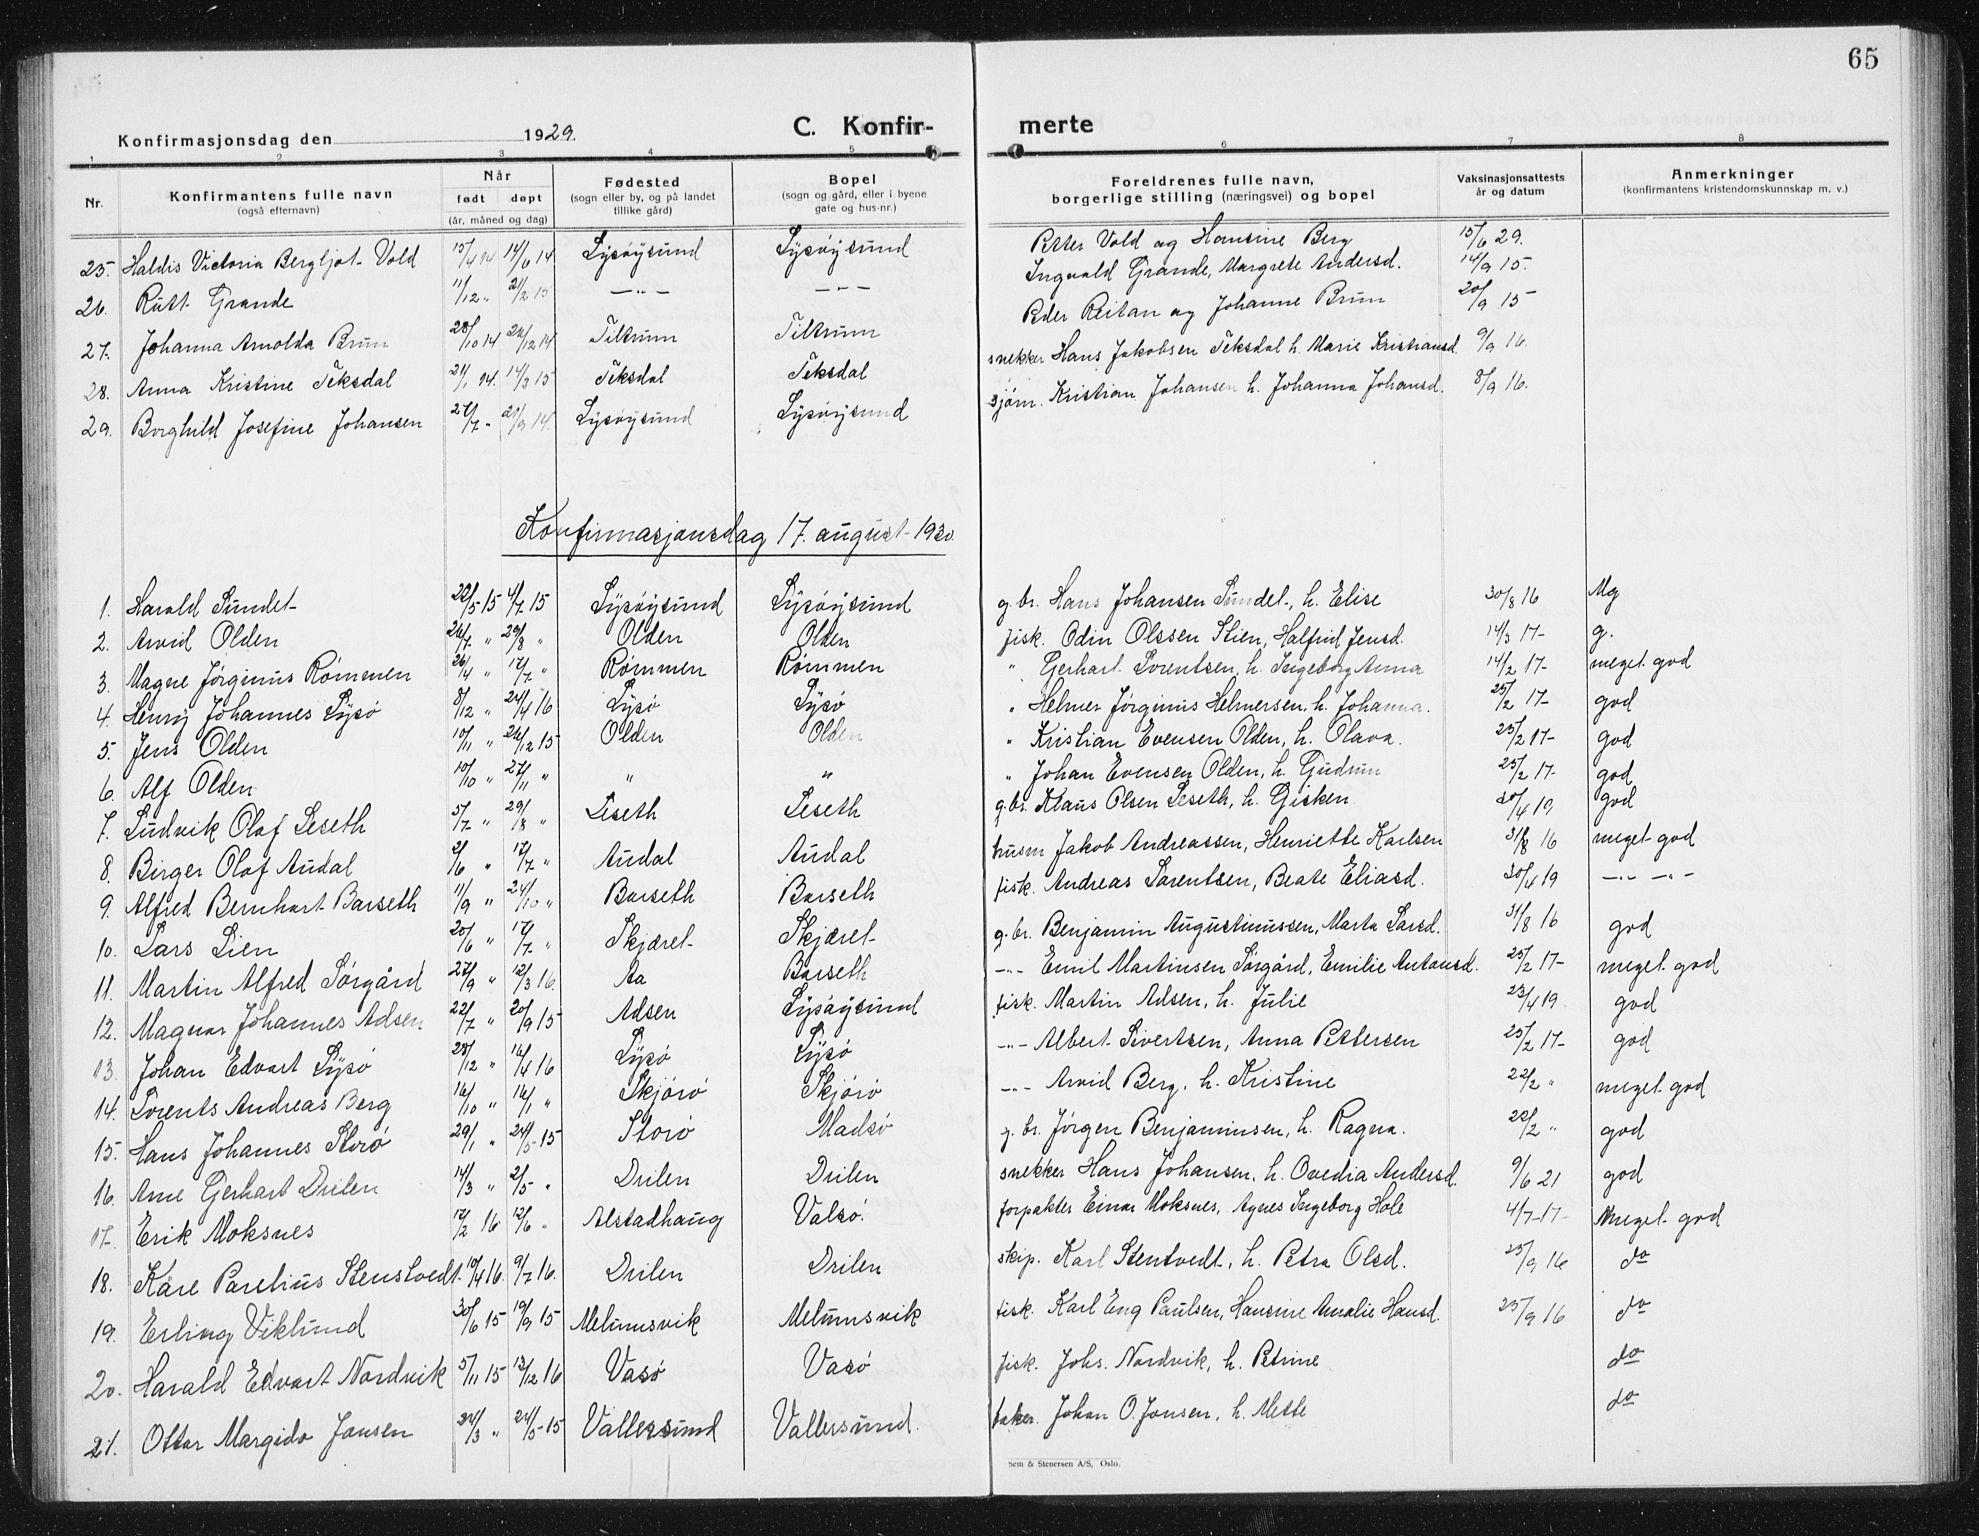 65
Konfirmasjonsdag den 1929. C. Konfirmerte
1 2 3 4 5 6 7 8
Nr. Konfirmantens fulle navn (også efternavn) Når født døpt (år, måned og dag) Fødested (sogn eller by, og på landet tillike gård) Bopel (sogn og gård, eller i byene gate og hus-nr.) Foreldrenes fulle navn, borgerlige stilling (næringsvei) og bopel Vaksinasjonsattests år og datum Anmerkninger (konfirmantens kristendomskunnskap m. v.)
25. Haldis Victoria Bergljot Vold 15/4 14 14/6 14 Lysøysund Lysøysund Petter Vold og Hansine Berg 15/6 29.
26. Rutt Grande 11/12 " 21/2 15 —"— —"— Ingvald Grande, Margrete Andersd. 14/9 15.
27. Johanna Arnolda Brun 28/10 14 26/12 14 Tiltrum Tiltrum Peder Reitan og Johanne Brun 20/9 15
28. Anna Kristine Teksdal 21/1 14. 14/3 15 Teksdal Teksdal snekker Hans Jakobsen Teksdal h. Marie Kristiansd. 9/9 16.
29. Borghild Josefine Johansen 27/7 " 21/9 14. Lysøysund Lysøysund sjøm. Kristian Johansen h. Johanna Johansd. 8/9 16.
Konfirmasjonsdag 17. august 1930.
1. Harald Sundet 22/5 15 4/7 15 Lysøysund Lysøysund g.br. Hans Johansen Sundet, h. Elise 30/8 16 Mg
2. Arvid Olden 26/7 " 29/8 " Olden Olden fisk. Odin Olssen Stien, Halfrid Jensd. 14/3 17- g.
3. Magne Jørginus Rømmen 26/4 " 17/7 " Rømmen Rømmen " Gerhart Lorentsen, h. Ingeborg Anna 14/2 17- meget god
4. Henry Johannes Lysø 8/12 " 24/4 16 Lysø Lysø " Helmer Jørginus Helmersen, h. Johanna. 25/2 17- god
5. Jens Olden 10/11 " 26/12 15 Olden Olden " Kristian Evensen Olden, h. Olava. 25/2 17- god
6. Alf Olden 10/10 " 27/11 " " " " Johan Evensen Olden, h. Gudrun 25/2 17- god
7. Ludvik Olaf Leseth 5/7 " 29/8 " Leseth Leseth g.br. Klaus Olsen Leseth, h. Gisken 30/4 19 god
8. Birger Olaf Audal 2/6 " 17/7 " Audal Audal husm Jakob Andreassen, Henriette Karlsen 31/8 16 meget god
9. Alfred Bernhart Barseth 11/9 " 24/10 " Barseth Barseth fisk. Andreas Lorentsen, Beate Eliasd. 30/4 19 —"— —"—
10. Lars Lien 20/6 " 17/7 " Skjæret Skjæret g.br. Benjamin Augustinussen, Marta Larsd. 31/8 16 god
11. Martin Alfred Sørgård 27/9 " 12/3 16. Aa Barseth —"— Emil Martinsen Sørgård, Emilie Antonsd. 25/2 17- meget god
12. Magnar Johannes Adsen 22/7 " 20/9 15 Adsen Lysøysund fisk. Martin Adsen, h. Julie 23/4 19. god
13. Johan Edvart Lysø 28/12 " 16/4 16 Lysø Lysø —"— Albert Sivertsen, Anna Pettersen 25/2 17- god
14. Lorents Andreas Berg 14/10 " 16/1 " Skjørø Skjørø —"— Arvid Berg, h. Kristine 22/2 " meget god
15. Hans Johannes Storø 29/1 " 24/5 15 Storø Madsø g.br. Jørgen Benjaminsen, h. Ragna. 22/2 " god
16. Arne Gerhart Drilen 14/3 " 2/5 " Drilen Drilen snekker Hans Johansen, h. Ovedia Andersd. 9/6 21 god
17. Erik Moksnes 12/2 16 12/6 " Alstadhaug Valsø. forpakter Einar Moksnes, Agnes Ingeborg Hole 4/7-17- Meget god
18. Kåre Parelius Stenstvedt 10/4 16. 9/7 16. Drilen Drilen skip. Karl Stentvedt, h. Petra Olsd. 25/9 16 do
19. Erling Viklund 30/6 15 19/9 15 Melumsvik Melumsvik fisk. Karl Eng Paulsen, Hansine Amalie Hansd. 25/9 16 do
20. Harald Edvart Nordvik 5/11 15 12/12 16 Vasø Vasø fisk. Johs. Nordvik, h. Petrine do
21. Ottar Margido Jansen 24/3 " 24/5-15 Vallersund Vallersund. baker. Johan O. Jansen, h. Mette do
Sem & Stenersen A/S, Oslo.